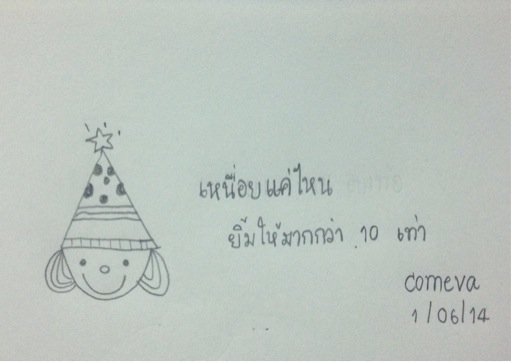 เหนื่อยแค่ไหน
ยิ้มให้มากกว่า 10 เท่า
comeva
1/06/14